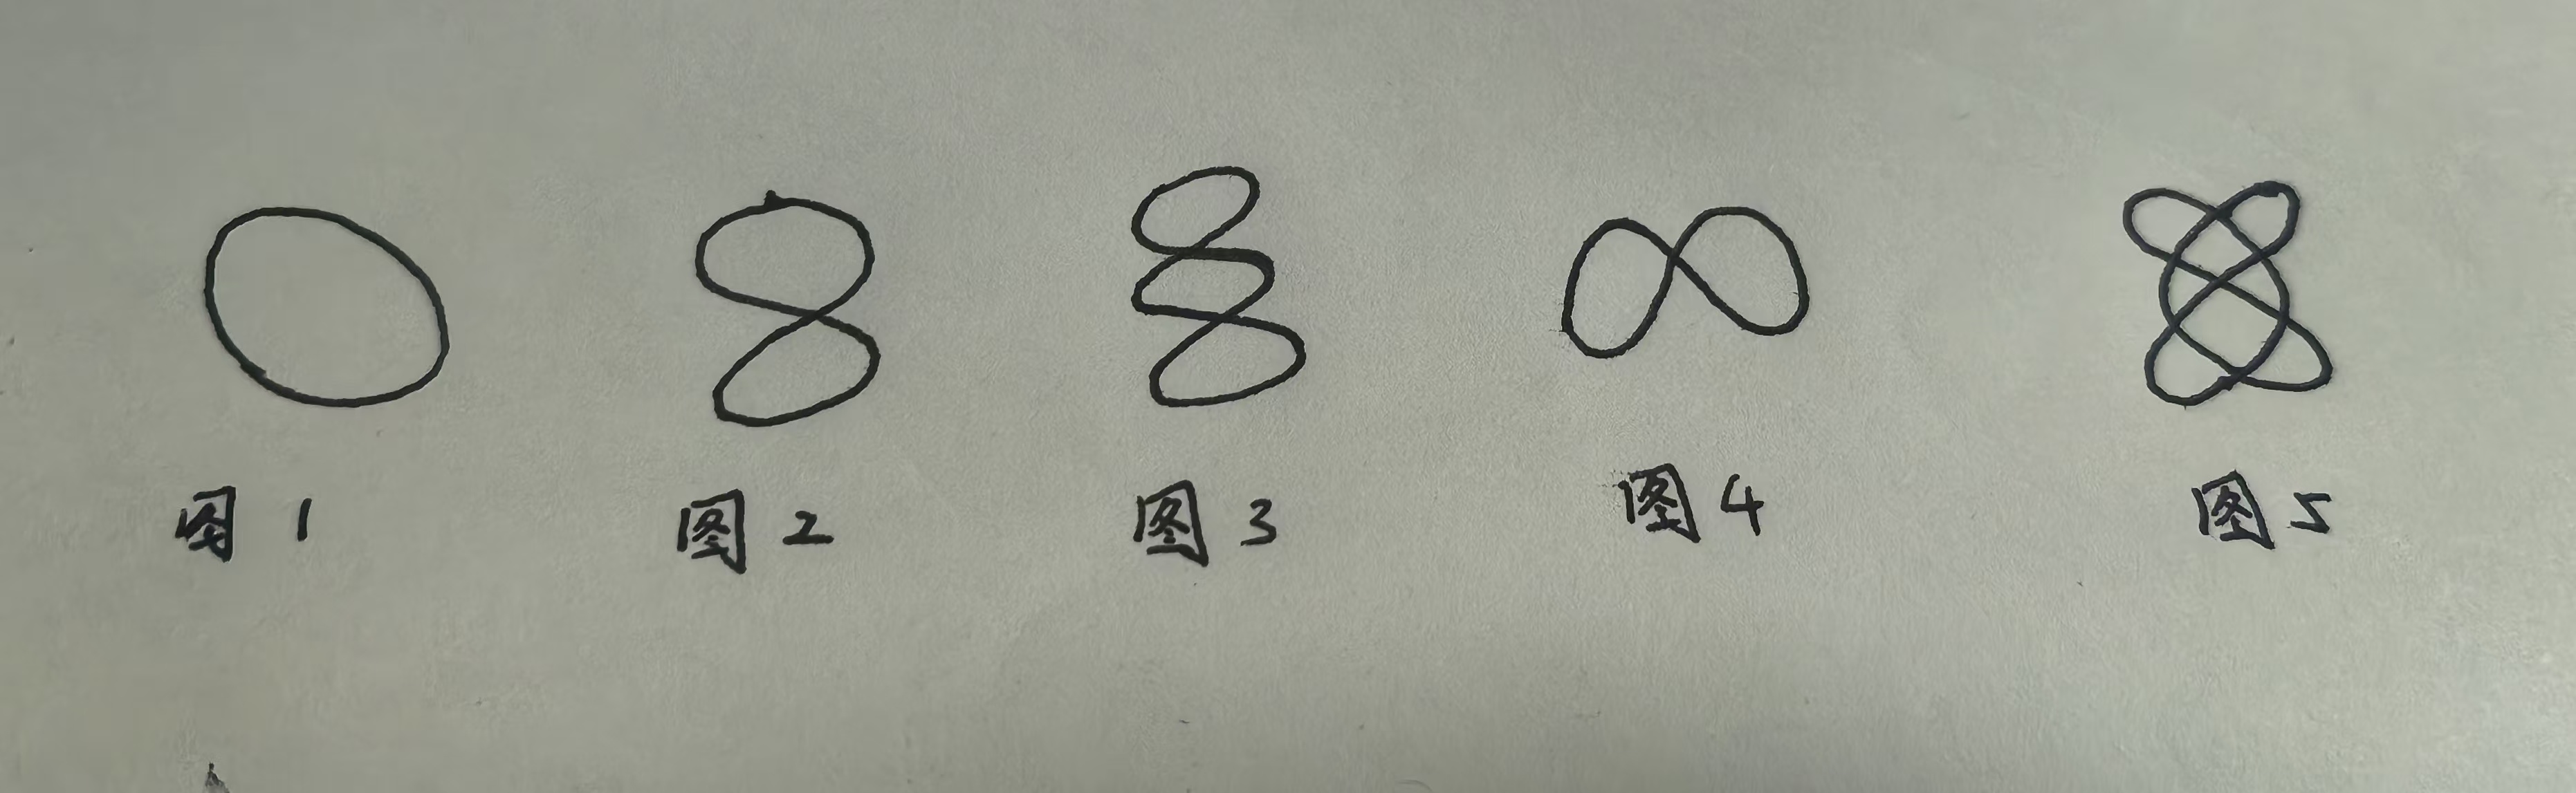 图 1 图 2 图 3 图 4 图 5